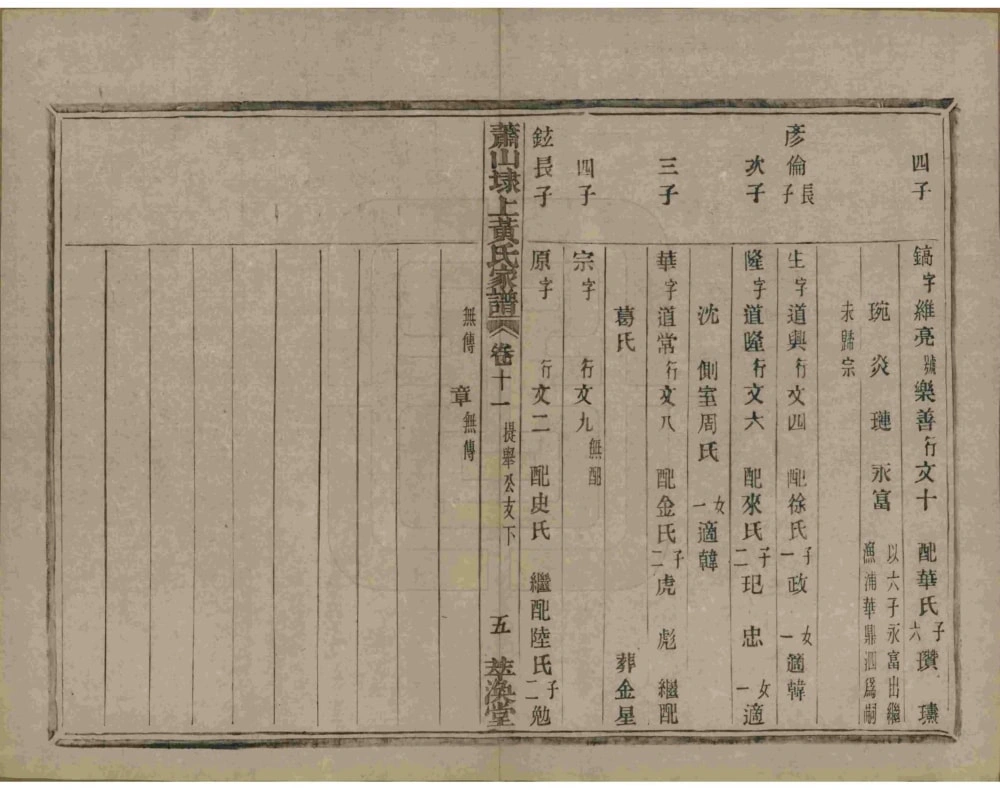 四子
鎬字維亮號樂善行文十 配華氏子六 瓚 璛
琬 炎 璉 永富 以六子永富出繼漁浦華鼎泗爲嗣
未歸宗
彦倫長子
生字道興行文四 配徐氏子一政 女一適韓
次子
隆字道隆行文六 配來氏子二玘 忠 女一適
沈 側室周氏 女一適韓
三子
華字道常行文八 配金氏子二虎 彪 繼配
葛氏 葬金星
四子
宗字 行文九無配
鉉長子
原字 行文二 配史氏 繼配陸氏子二勉
蕭山埭上黃氏家譜 卷十一 提舉公支下 五 萃渙堂
無傳 章無傳